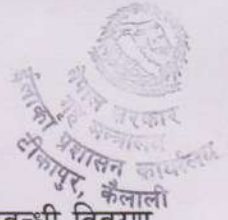 नेपाल सरकार
गृह मन्त्रालय
ईलाका प्रशासन कार्यालय
टीकापुर, कैलाली
विवरण